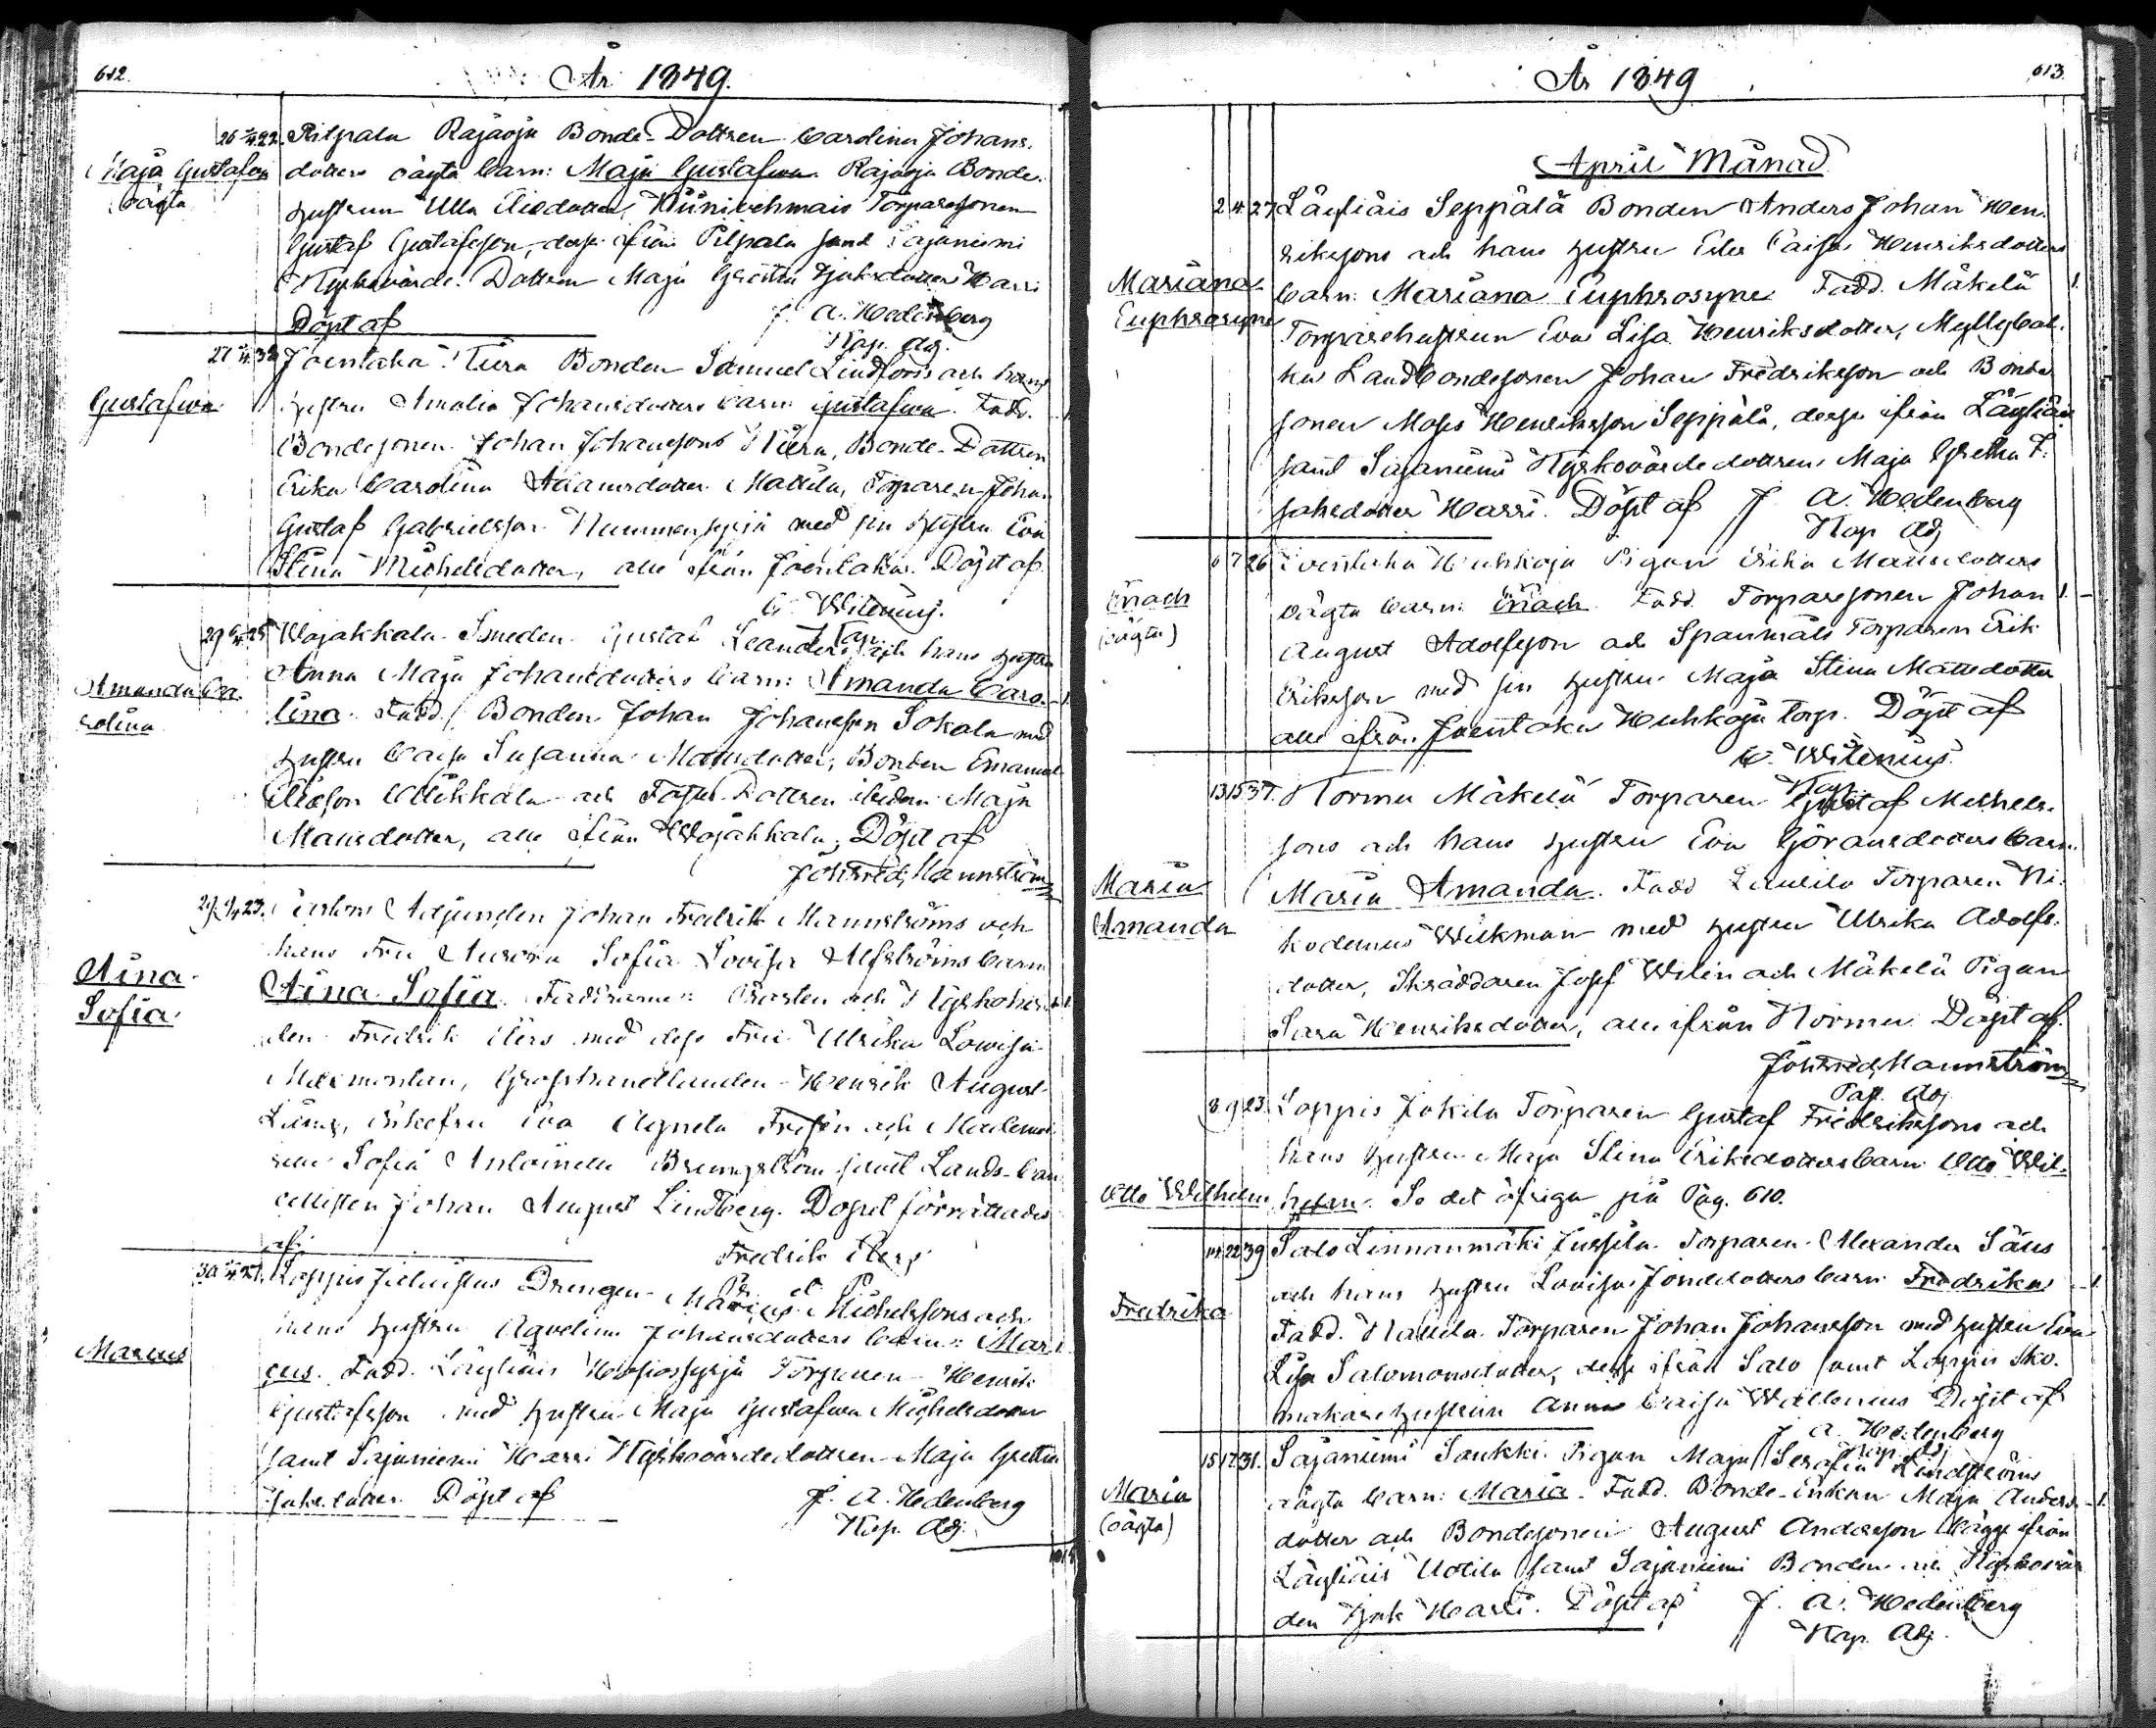 612.
År 1849.
26 1/4 22. Pilpala Rajaoja Bonde-Dottren Carolina Johans-
Maja Gustafva dotters oägta barn: Maja Gustafva. Rajaoja Bonde-
oägta hustrun Ulla Eliedotter, Torparesonen
Gustaf Gustafsson, desse ifrån Pilpala samt Sajaniemi
Kyrkovärds Dottren Maja Gretha Isaksdotter Harri
Döpt af J. A. Hedenberg
Kap. Adj.
27 38 Joentaka Bonden Samuel Lindfors och hans
Gustafva hustru Amalia Johansdotters barn Gustafva. Fadd.
Bondesonen Johan Johansson Bonde-Dottren
Erika Carolina Adamsdotter Mattila, Torparen Johan
Gustaf Gabrielsson Nummenpyjä med sin hustru Eva
Stina Michelsdotter, alle ifrån Joentaka. Döpt af
C. Witenius.
Kap.
29 25 Wojakkala Smeden Gustaf Leanders och hans hustru
Anna Maja Johansdotters barn: Amanda Caro-
Amanda Ca-
rolina
lina. Fadd. Bonden Johan Johansson Sokala med
hustru Caisa Susanna Mattsdotter, Bonden Emanuel
Eliasson Ollikkala och Dottren ibidem Maja
Mattsdotter, alle ifrån Wojakkala. Döpt af
Joh. Fred. Mannström
29 23. Pastors Adjuncten Johan Fredrik Mannströms och
hans Fru Aurora Sofia Lovisa Alfströms barn
Aina
Sofia
Aina Sofia. Faddrarne: Prosten och Kyrkoher-
den Fredrik Elers med dess Fru Ulrika Lovisa
Maxmontan, Grosshandlanden Henrik August
Läng, Enkefru Eva Agneta Frisén och Mademoi-
selle Sofia Antoinette samt Lands-Can
cellisten Johan August Lindberg. Dopet förrättades
af Fredrik Elers
P. et P.
30 27. Loppis Drengen Marcus Michelssons och
hans hustru Agvelina Johansdotters barn: Mar-
Marcus
cus. Fadd. Läyliäis Torparen Henrik
Gustafsson med hustru Maja Gustafva Michelsdotter
samt Sajaniemi Harri Kyrkovärdsdottren Maja Gretha
Isaksdotter. Döpt af J. A. Hedenberg
Kap. Adj.
År 1849
613.
April Månad
2 4 27 Läyliäis Seppälä Bonden Anders Johan Hen-
rikssons och hans hustru Caisa Henriksdotters
Mariana
Euphrosyne
barn: Mariana Euphrosyne. Fadd. Mäkelä 1.
Torparehustrun Eva Lisa Henriksdotter, Myllykal-
ka Landbondesonen Johan Fredriksson och Bonde
sonen Moses Henriksson Seppälä, desse ifrån Läyliäis
samt Sajaniemi Kyrkovärdsdottren Maja Gretha I-
saksdotter Harri. Döpt af J. A. Hedenberg
Kap. Adj
6 7 26 Joentaka Huhkoja Pigan Erika Mattsdotters
Enoch
(oägta)
oägta barn: Enoch. Fadd. Torparesonen Johan 1.
August Adolfsson och Torparen Erik
Eriksson med sin hustru Maja Stina Mattsdotter
alle ifrån Joentaka Huhkoja torp. Döpt af
C. Witenius.
Kap.
13 15 37. Kormu Mäkelä Torparen Gustaf Michels-
sons och hans hustru Eva Göransdotters barn
Maria
Amanda
Maria Amanda. Fadd. Torparen Ni-
kodemus Wickman med hustru Ulrika Adolfs-
dotter, Skräddaren Josef Wilén och Mäkelä Pigan
Sara Henriksdotter, alle ifrån Kormu. Döpt af
Joh. Fred. Mannström
Past. Adj.
8 9 23. Loppis Jokila Torparen Gustaf Fredrikssons och
hans hustru Maja Stina Eriksdotters barn Otto Wil-
Otto Wilhelm helm. Se det öfriga på Pag. 610.
14 22 39 Salo Linnanmäki Jussila Torparen Alexander Säns
och hans hustru Lovisa Jonsdotters barn Fredrika 1.
Fredrika
Fadd. Torparen Johan Johansson med hustru Eva
Lisa Salomonsdotter, desse ifrån Salo samt Loppis Sko-
makarehustrun Anna Caisa Wallenius. Döpt af
J. A. Hedenberg
Kap. Adj
15 17 31. Sajaniemi Saukki Pigan Maja Serafia Lindströms
Maria
(oägta)
oägta barn: Maria. Fadd. Bonde-Enkan Maja Anders- 1.
dotter och Bondesonen August Andersson bägge ifrån
Läyliäis Uotila samt Sajaniemi Bonden och Kyrkovär
den Isak Harri. Döpt af J. A. Hedenberg
Kap. Adj.